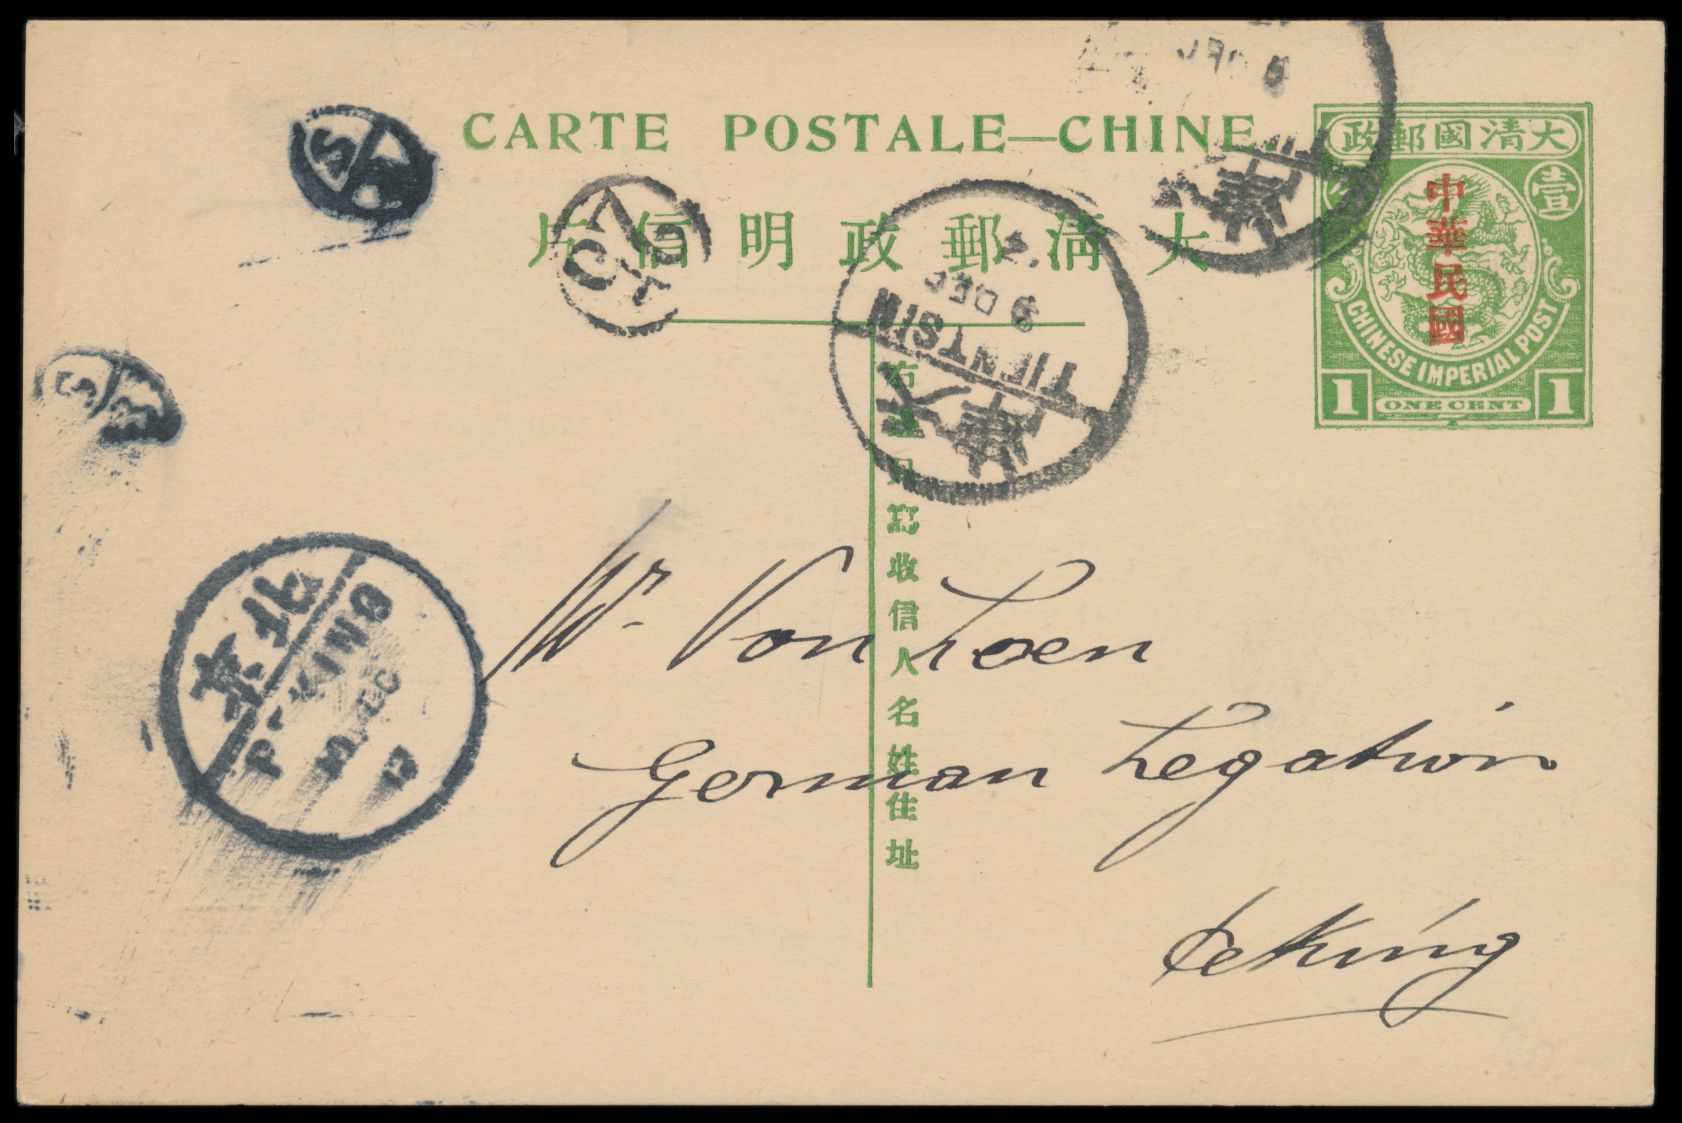 CARTE POSTALE—CHINE
大清郵政明信片
大清國郵政
壹
中華民國
CHINESE IMPERIAL POST
1 ONE CENT 1
TIENTSIN
9 DEC
天津
右邊只寫收信人名姓住址
北京
PEKING
DEC
Mr. Von Loen
German Legation
Peking